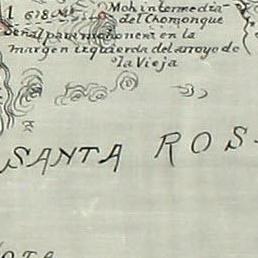 Moh intermedia-
del Chomongue
Señal para mohonera en la
margen izquierda del arroyo de
la Vieja
SANTA ROS-